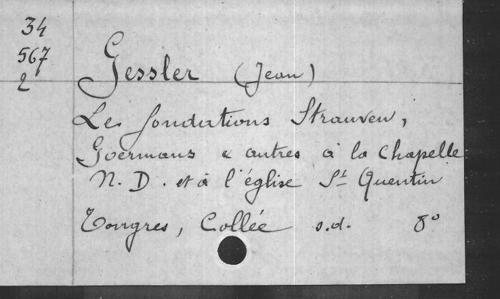 34
567
2
Gessler (Jean)
Les fondations Strauven,
Goermans & autres à la Chapelle
N. D. et à l'église St Quentin
Tongres, Collée s.d. 8°